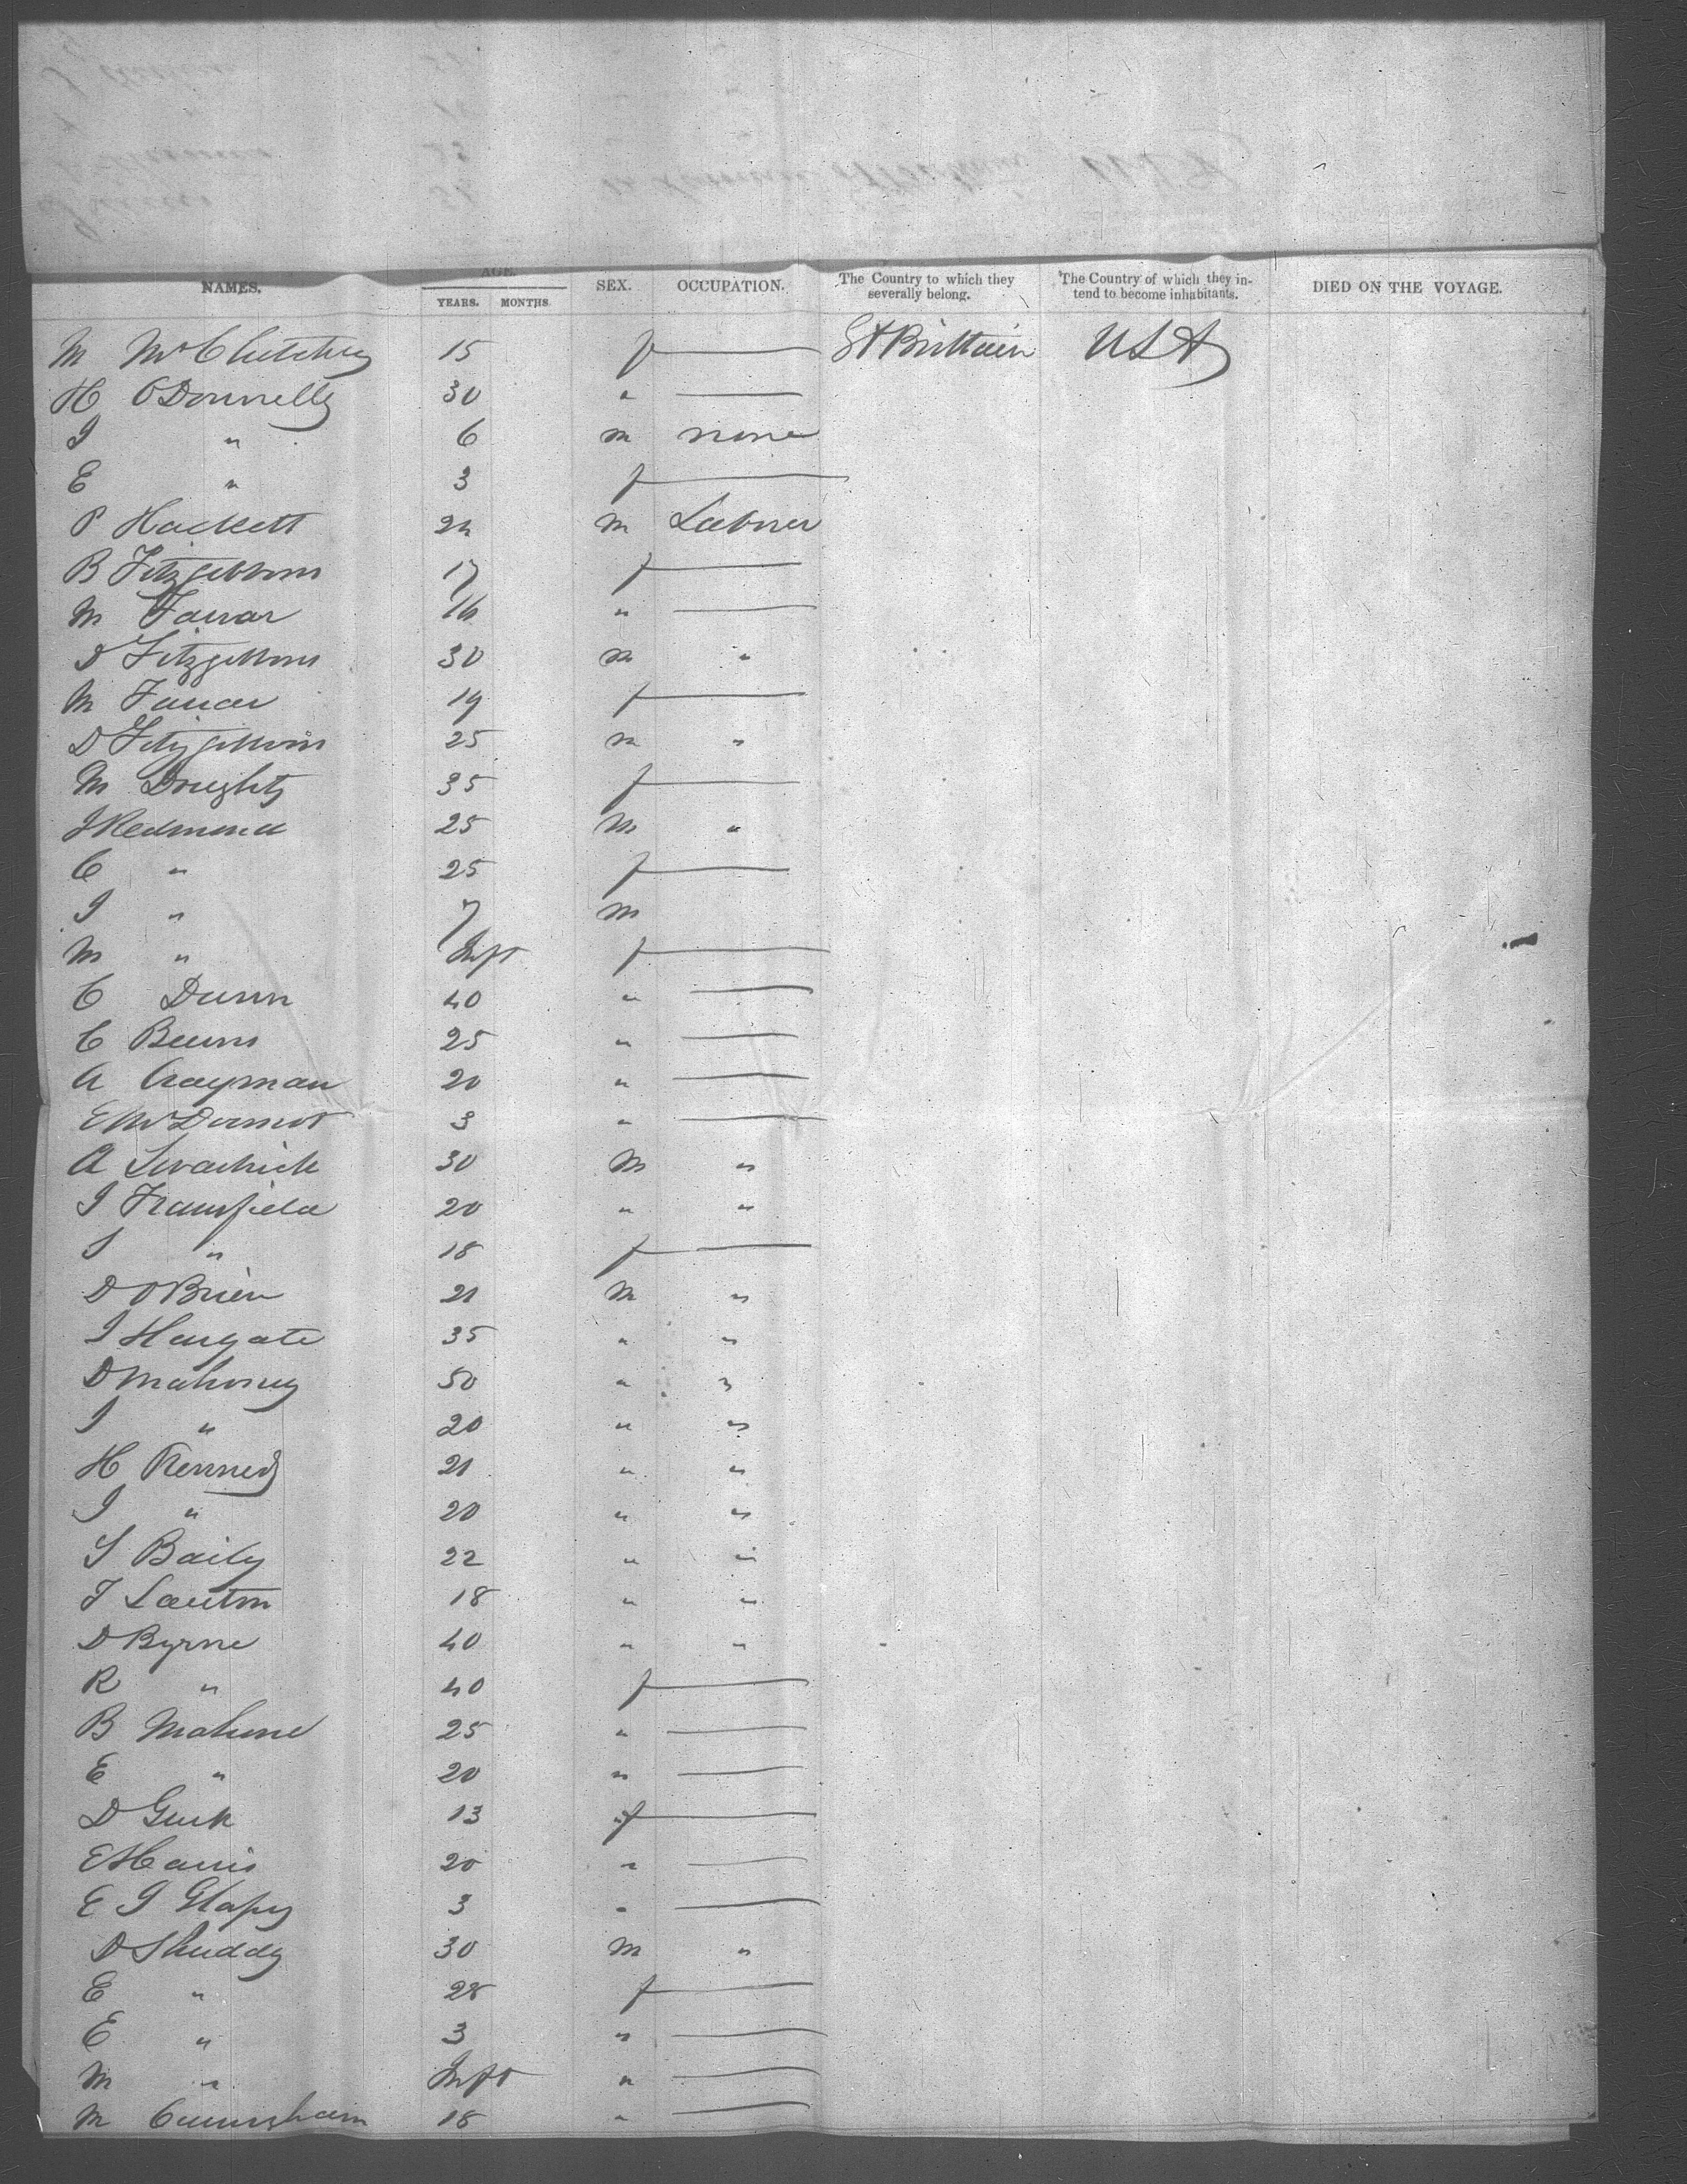 NAMES. AGE. YEARS. MONTHS. SEX. OCCUPATION. The Country to which they severally belong. The Country of which they intend to become inhabitants. DIED ON THE VOYAGE.
M McClutchey 15 f — Gt Brittain USA
H ODonnelly 30 " —
J " 6 m none
E " 3 f —
P Hackett 24 m Labner
B Fitzgibbons 17 f —
M Farrar 16 " —
D Fitzgibbons 30 m "
M Farrar 19 f —
D Fitzgibbons 25 m "
M Doughty 35 f —
J Redmond 25 m "
C " 25 f —
J " 7 m
M " Inft f —
C Dunn 40 " —
C Burns 25 " —
A Crayman 20 " —
E McDermot 3 " —
A 30 m "
J Transfield 20 " "
S " 18 f —
D OBrien 21 m "
J Hargate 35 " "
D Mahoney 50 " "
J " 20 " "
H Kennedy 21 " "
J " 20 " "
S Baily 22 " "
T Lauton 18 " "
D Byrne 40 " "
R " 40 f —
B Mahone 25 " —
E " 20 " —
D 13 f —
E Harris 20 " —
E J 3 " —
D Shuddy 30 m "
E " 28 f —
E " 3 " —
M " Inft " —
M Cunningham 18 " —